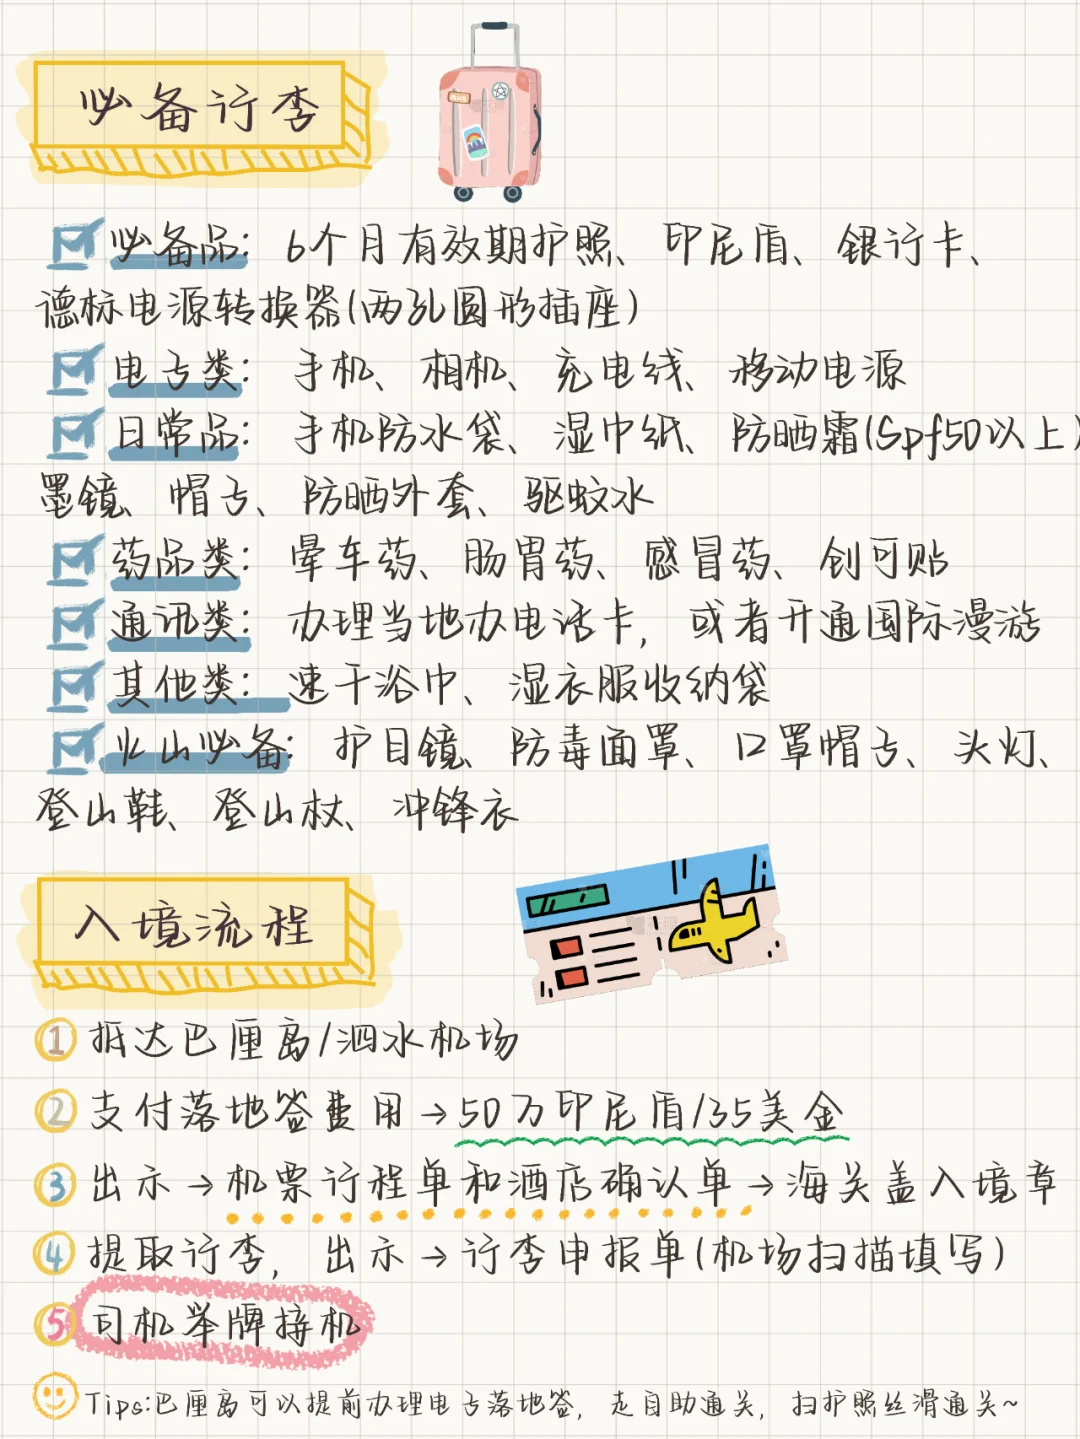 必备行李
必备品：6个月有效期护照、印尼盾、银行卡、
德标电源转换器(两孔圆形插座)
电子类：手机、相机、充电线、移动电源
日常品：手机防水袋、湿巾纸、防晒霜(Spf50以上)
墨镜、帽子、防晒外套、驱蚊水
药品类：晕车药、肠胃药、感冒药、创可贴
通讯类：办理当地办电话卡，或者开通国际漫游
其他类：速干浴巾、湿衣服收纳袋
火山必备：护目镜、防毒面罩、口罩帽子、头灯、
登山鞋、登山杖、冲锋衣
入境流程
1 抵达巴厘岛/泗水机场
2 支付落地签费用→50万印尼盾/35美金
3 出示→机票行程单和酒店确认单→海关盖入境章
4 提取行李，出示→行李申报单(机场扫描填写)
5 司机举牌接机
Tips:巴厘岛可以提前办理电子落地签，走自助通关，扫护照丝滑通关~